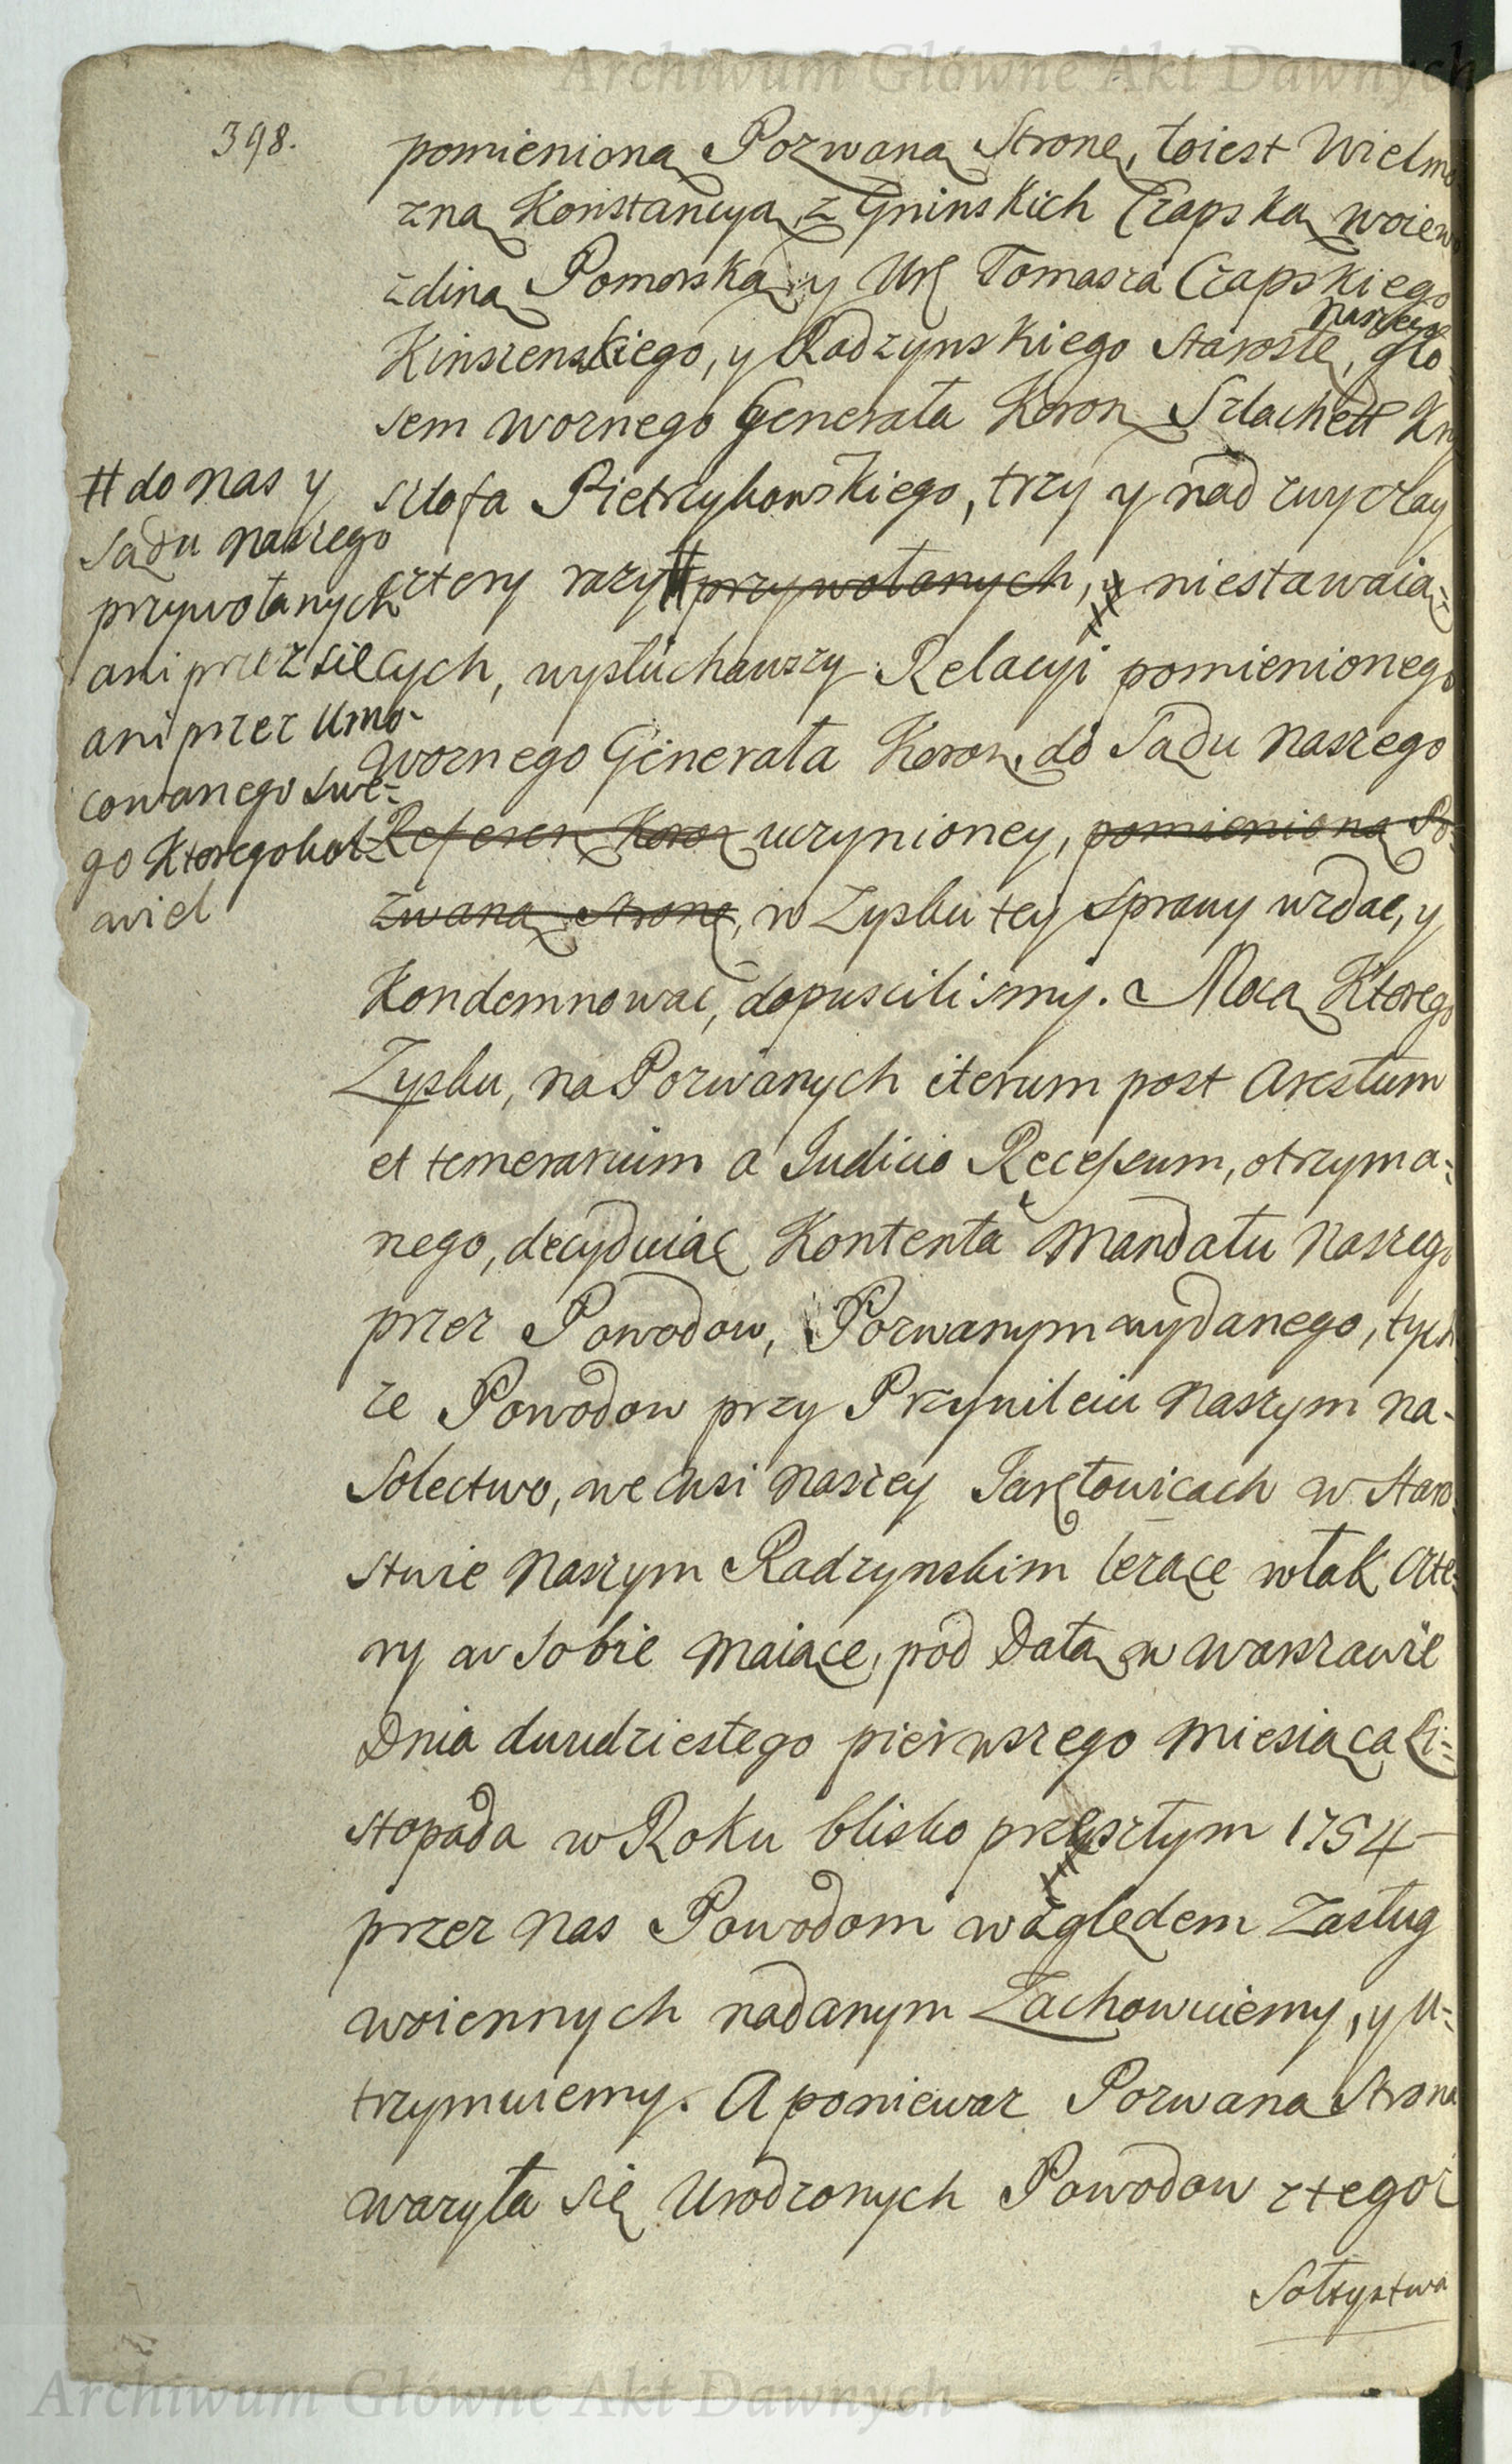 Archiwum Główne Akt Dawnych
398.
pomienioną Pozwaną Stronę, toiest Wielmo
zną Konstancyą z Gninskich Czapską woiewo
zdiną Pomorską y Ur. Tomasza Czapskiego
naszego
Kinszenskiego, y Radzynskiego Starostę, gło-
sem woznego Generała Koron. Szlachett Krzy
sztofa Pietrzykowskiego, trzy y nad zwyczay
cztery razy # przywołanych, a niestawaią-
cych, wysłuchawszy Relacyi pomienionego
woznego Generała Koron. do Sądu naszego
Referen. Koron uczynioney, pomienioną Po-
zwaną Stronę, w Zysku tey sprawy wzdac, y
Kondemnowac, dopuscilismy. Mocą Ktorego
Zysku, na Pozwanych iterum post Arestum
et temerarium a Iudicio Recessum, otrzyma-
nego, decyduiąc Kontenta Mandatu Naszego
przez Powodow, Pozwanym wydanego, tych
ze Powodow przy Przywileiu Naszym na-
Solectwo, we wsi naszey Jarętowicach w Staro-
stwie Naszym Radzynskim leżące włok czte-
ry w sobie maiące, pod Datą w Warszawie
Dnia dwudziestego pierwszego Miesiąca Li-
stopada w Roku blisko przeszłym 1754
przez Nas Powodom względem Zasług
woiennych nadanym Zachowuiemy, y u-
trzymuiemy. A poniewaz Pozwana Strona
wazyła się Urodzonych Powodow z tegoż
Sołtystwa
# do Nas y
Sądu naszego
przywołanych
ani przez się
ani przez Umo-
cowanego swe-
go Ktoregokol-
wiek
Archiwum Główne Akt Dawnych